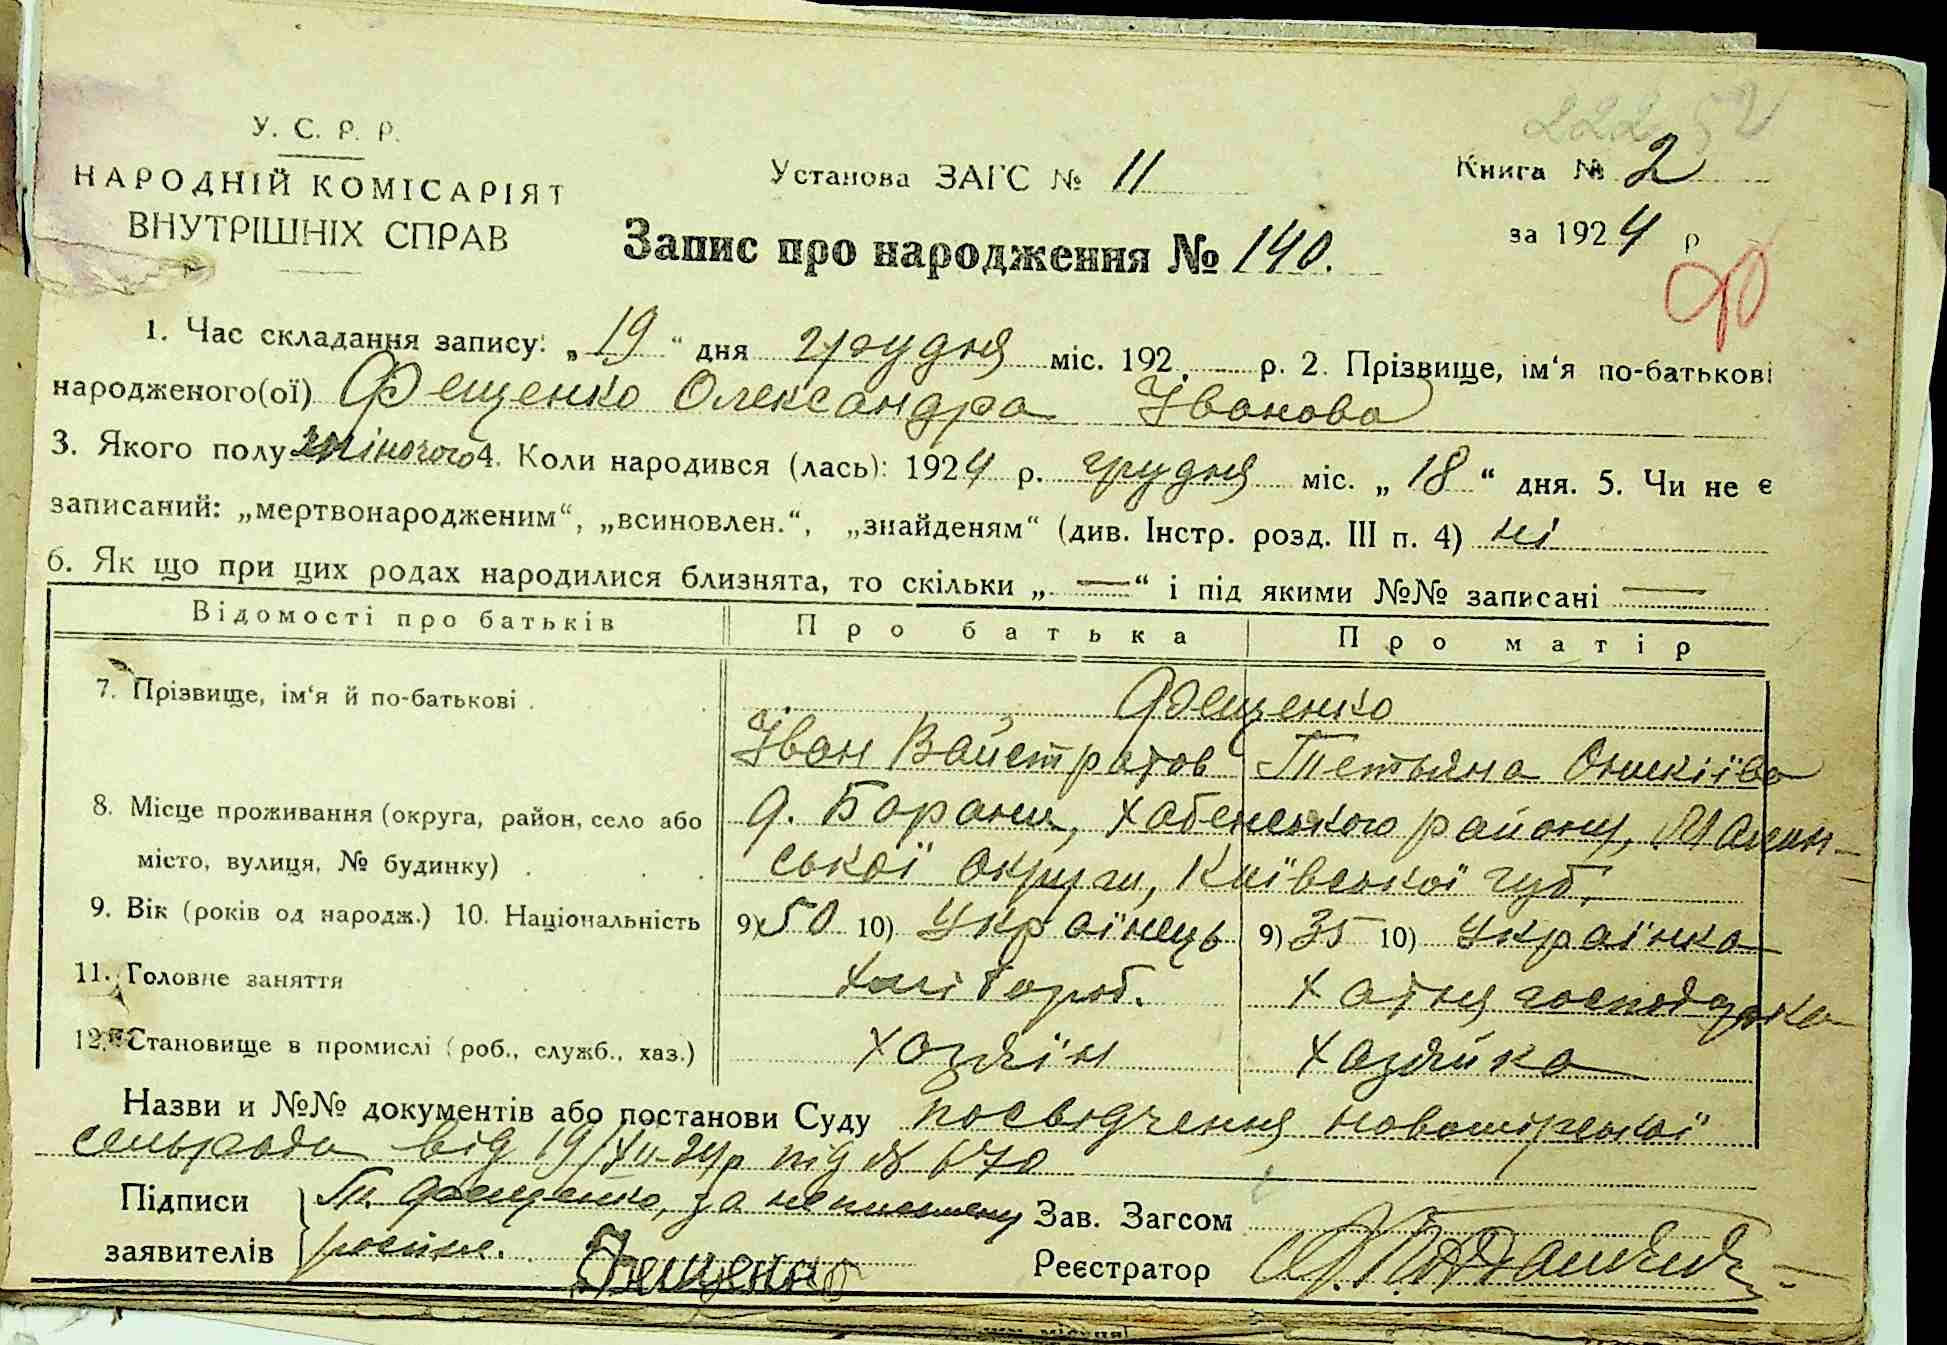 222 52
У. С. Р. Р.
НАРОДНІЙ КОМІСАРІЯТ
ВНУТРІШНІХ СПРАВ
Установа ЗАГС № 11
Книга № 2
за 1924 р
Запис про народження № 140.
1. Час складання запису: „19“ дня грудня міс. 192 р. 2. Прізвище, ім‘я по-батькові
народженого(ої) Фещенко Олександра Іванова
3. Якого полу жіночого 4. Коли народився (лась): 1924 р. грудня міс. „18“ дня. 5. Чи не є
записаний: „мертвонародженим“, „всиновлен.“, „знайденям“ (див. Інстр. розд. III п. 4) ні
6. Як що при цих родах народилися близнята, то скільки „—“ і під якими №№ записані —
Відомості про батьків Про батька Про матір
7. Прізвище, ім‘я й по-батькові . Фещенко
Іван Вайстратов Тетьяна Оникіїва
8. Місце проживання (округа, район, село або д. Борани, Хабенського району, Малин-
місто, вулиця, № будинку) . . . ської округи, Київської губ.
9. Вік (років од народж.) 10. Національність 9) 50 10) Українець 9) 35 10) Українка
11. Головне заняття хлібороб. хатня господарка
12. Становище в промислі (роб., служб., хаз.) хазяїн хазяйка
Назви и №№ документів або постанови Суду посвідчення
сельради від 19/XII-24 р під № 670
Підписи Т. Фещенко, за неписьмену Зав. Загсом
заявителів Фещенко Реєстратор